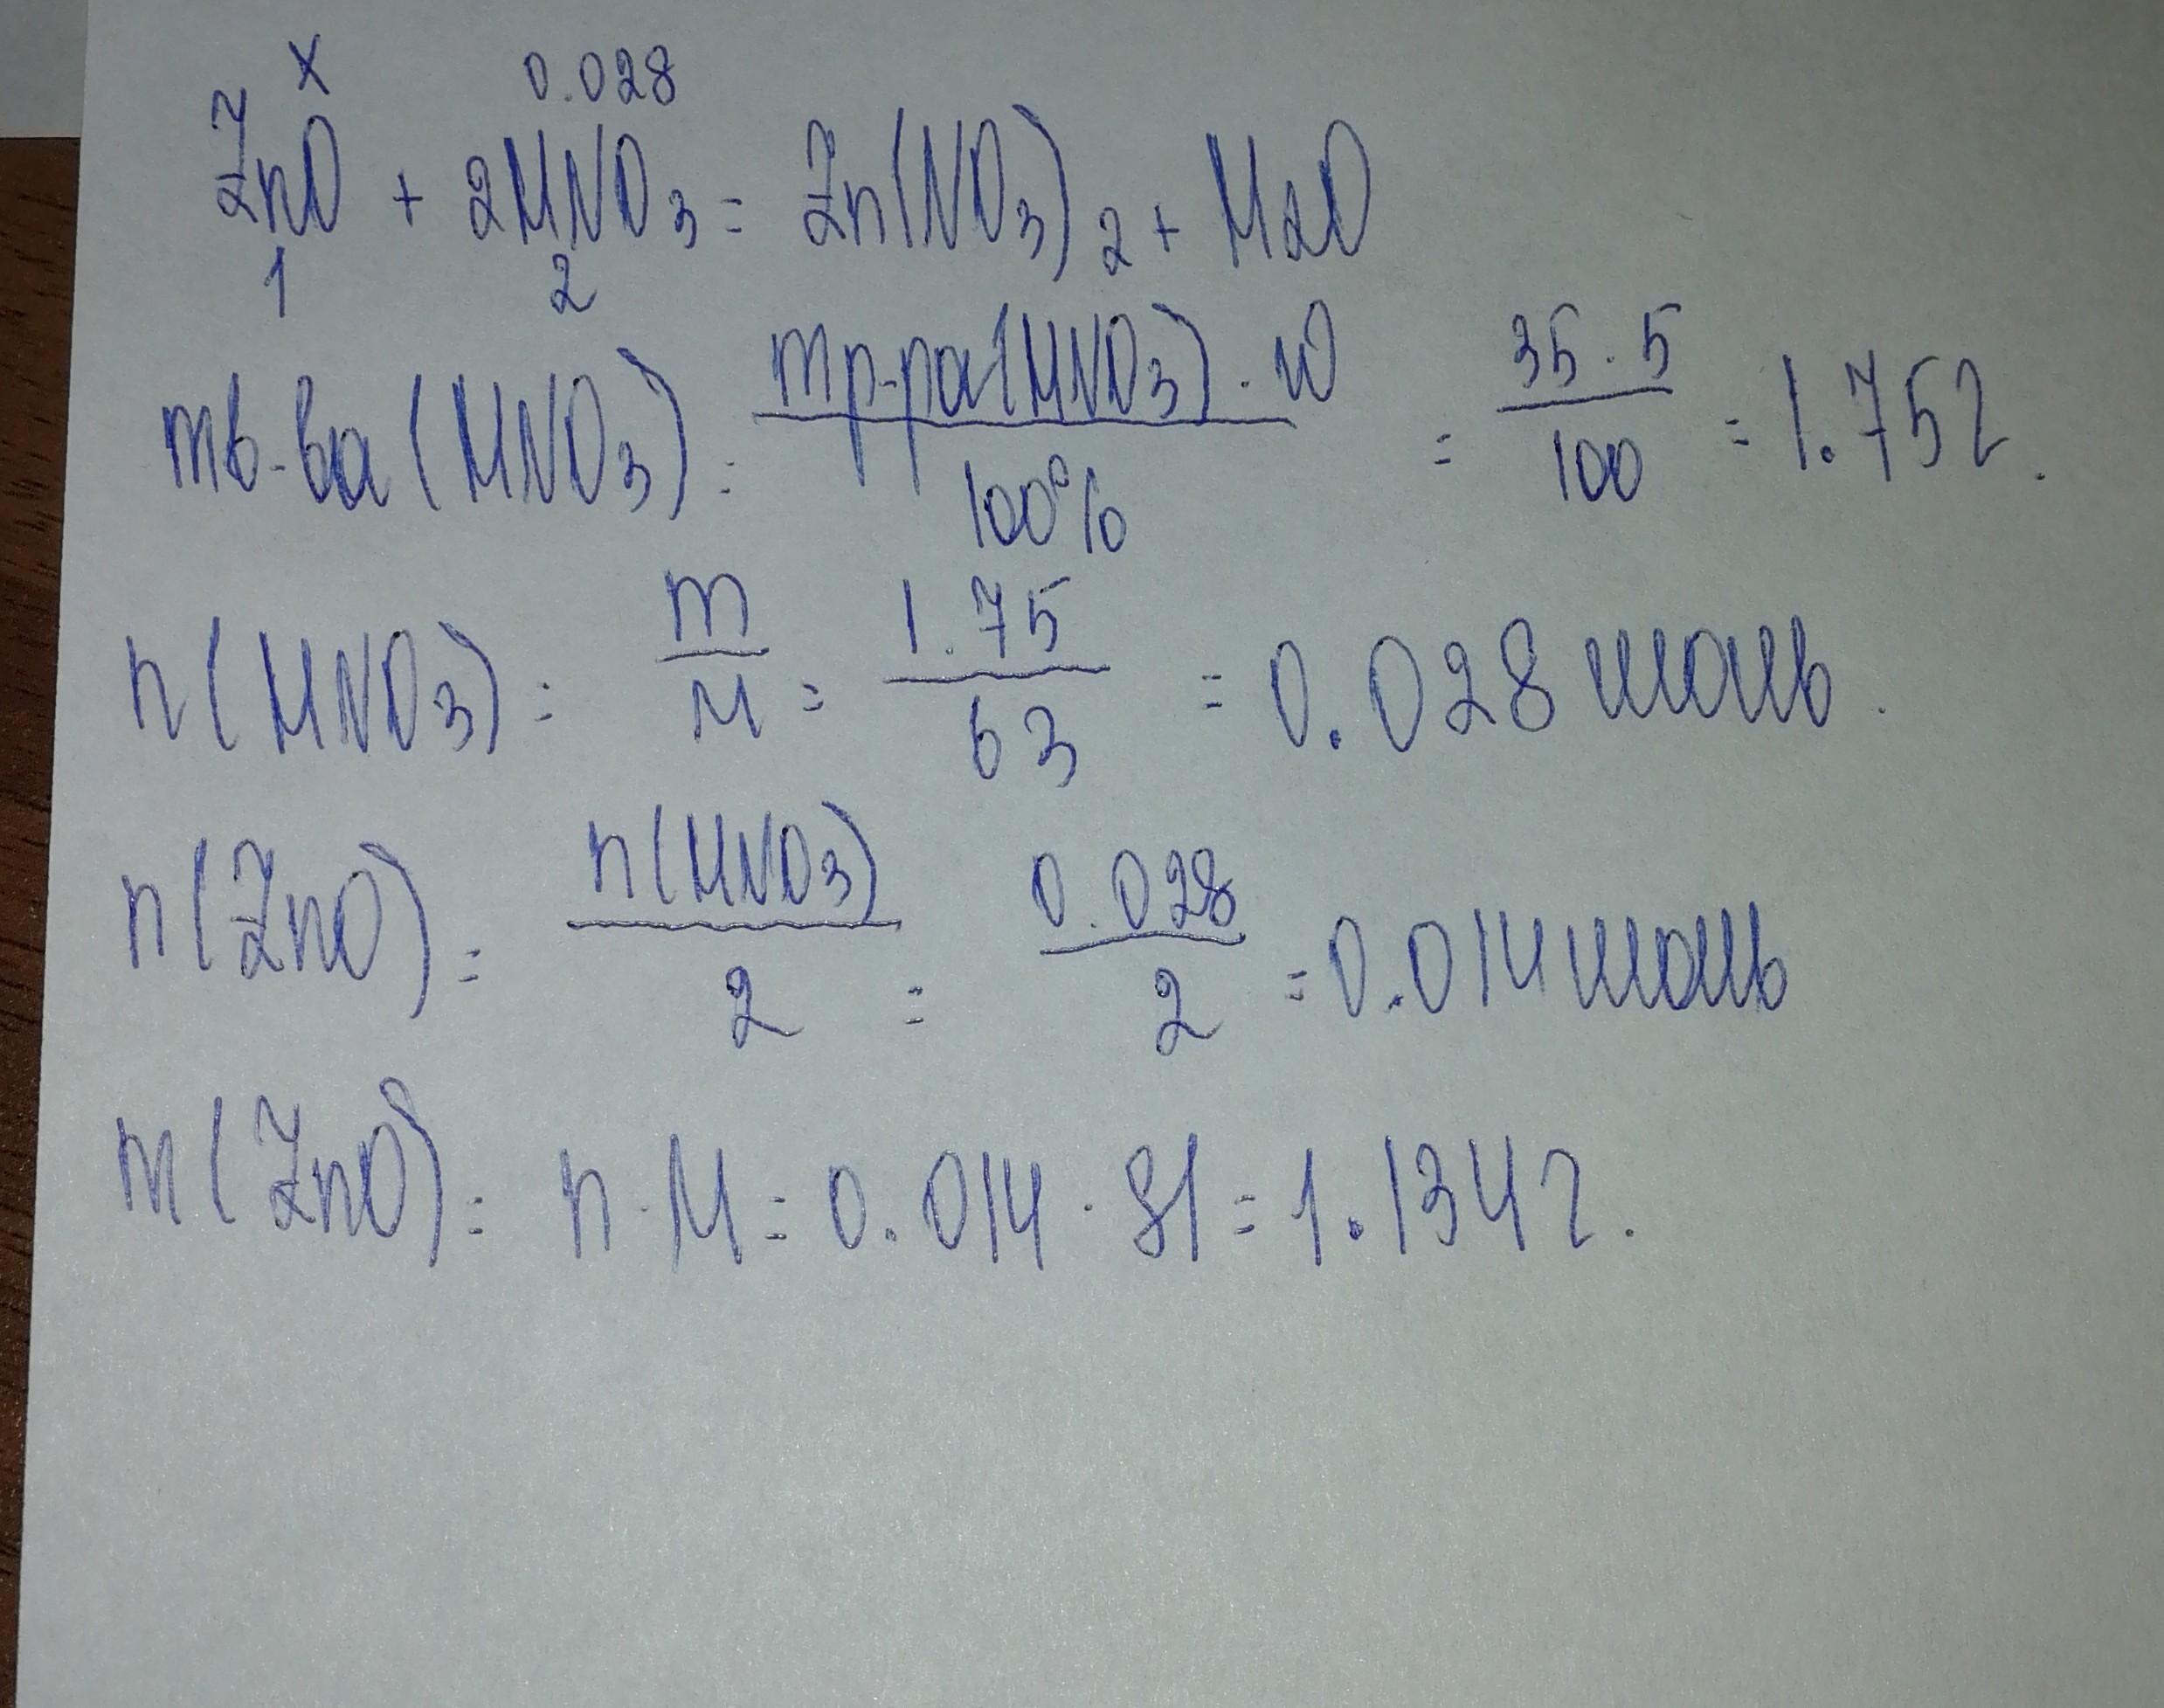 x 0.028
ZnO + 2HNO3 = Zn(NO3)2 + H2O
1 2
mв-ва (HNO3) = mр-ра(HNO3) · w / 100% = 35 · 5 / 100 = 1.75г.
n(HNO3) = m / M = 1.75 / 63 = 0.028 моль.
n(ZnO) = n(HNO3) / 2 = 0.028 / 2 = 0.014 моль
m(ZnO) = n · M = 0.014 · 81 = 1.134г.